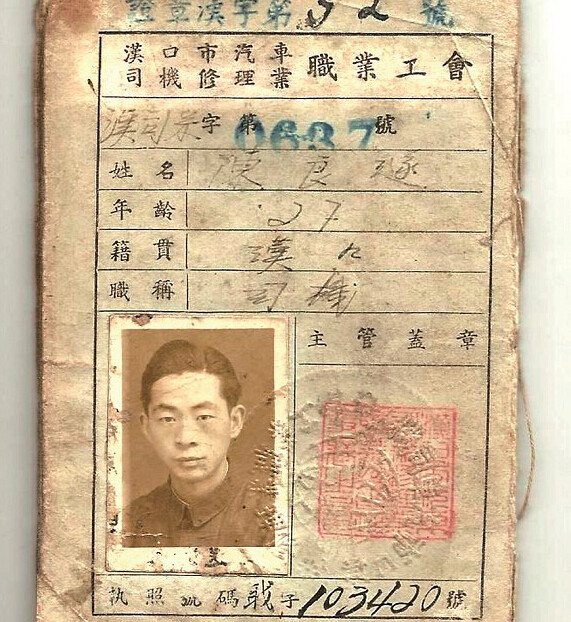 證章漢字第32號
漢口市汽車
司機修理業
職業工會
漢司字第0637號
姓名 陳良
年齡 27
籍貫 漢口
職稱 司機
主管蓋章
執照號碼戰字103420號